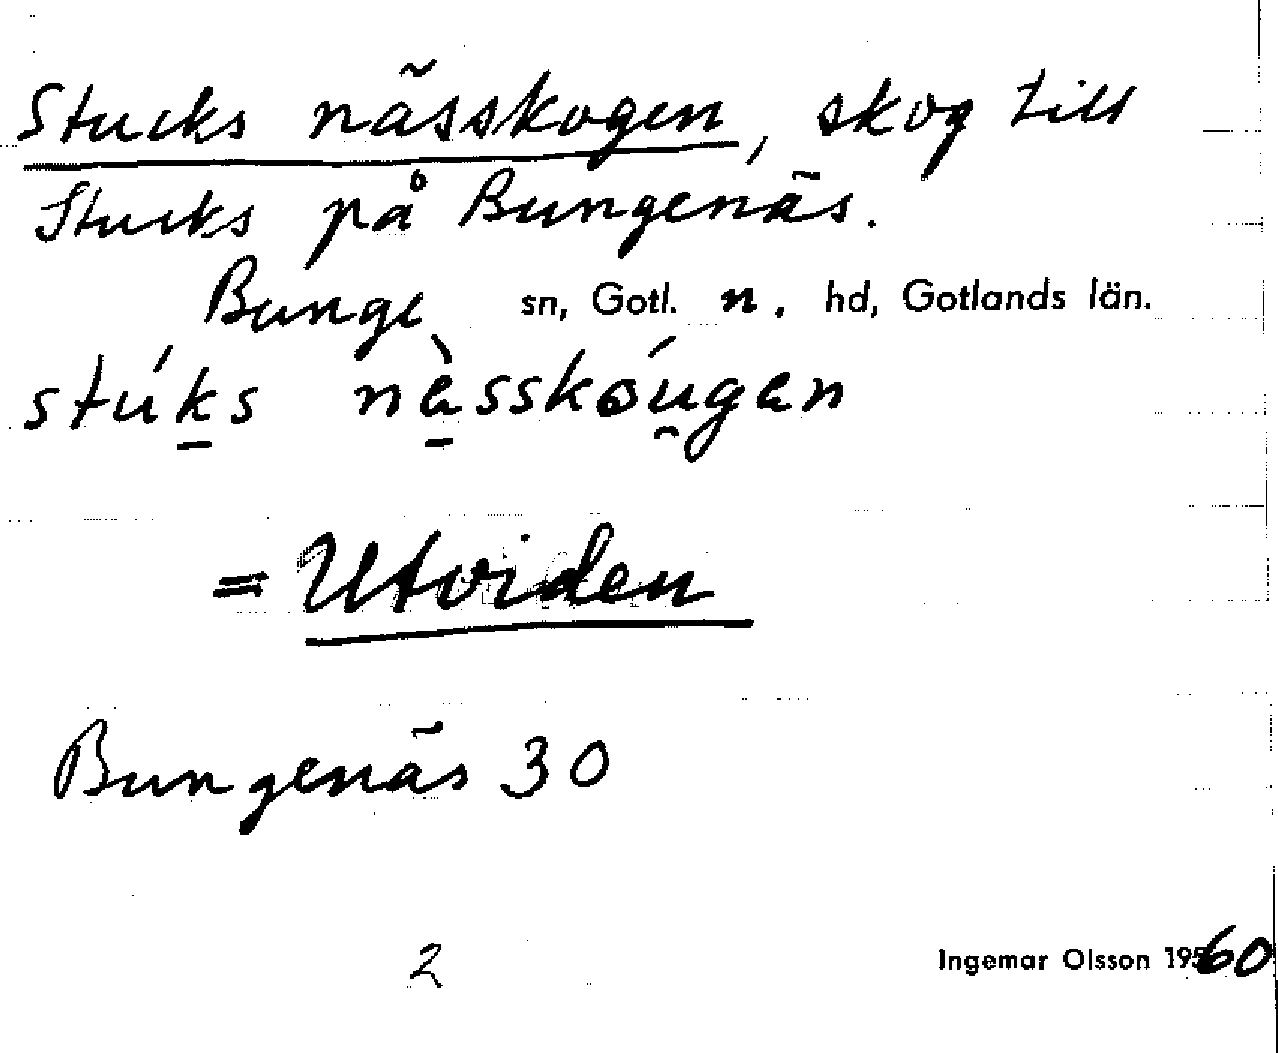 Stucks nässkogen, skog till
Stucks på Bungenäs.
Bunge sn, Gotl. n. hd, Gotlands län.
stúks nèsskóugen
= Utviden
Bungenäs 30
2
Ingemar Olsson 1960